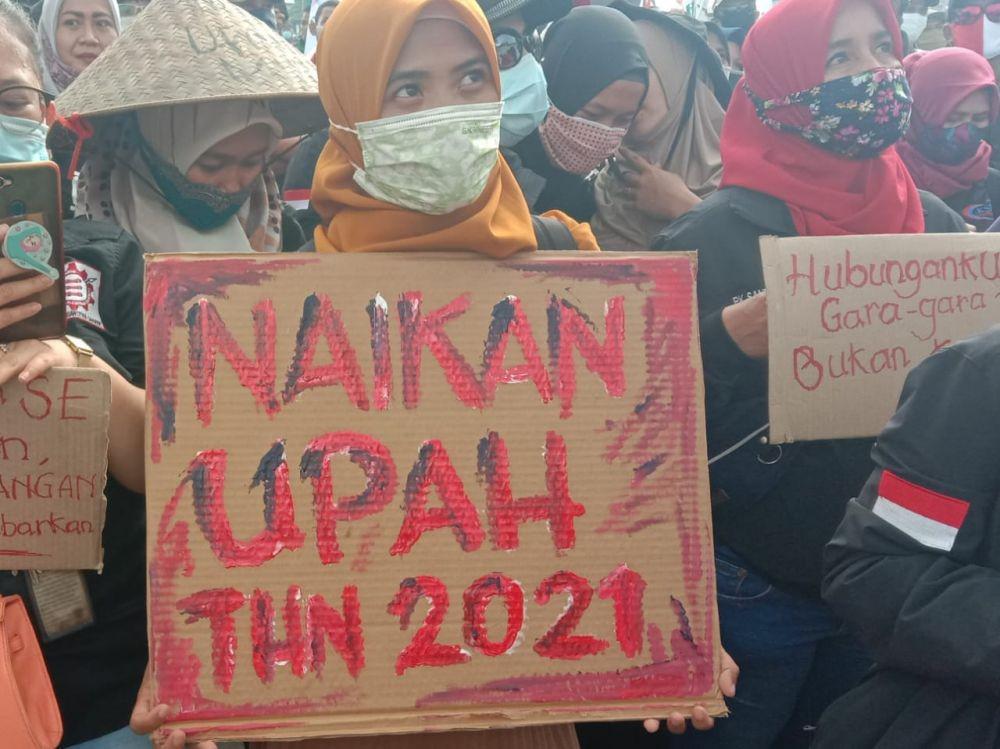 NAIKAN
UPAH
THN 2021
HubunganKu
Gara-gara
Bukan
SE
ANGAN
barkan